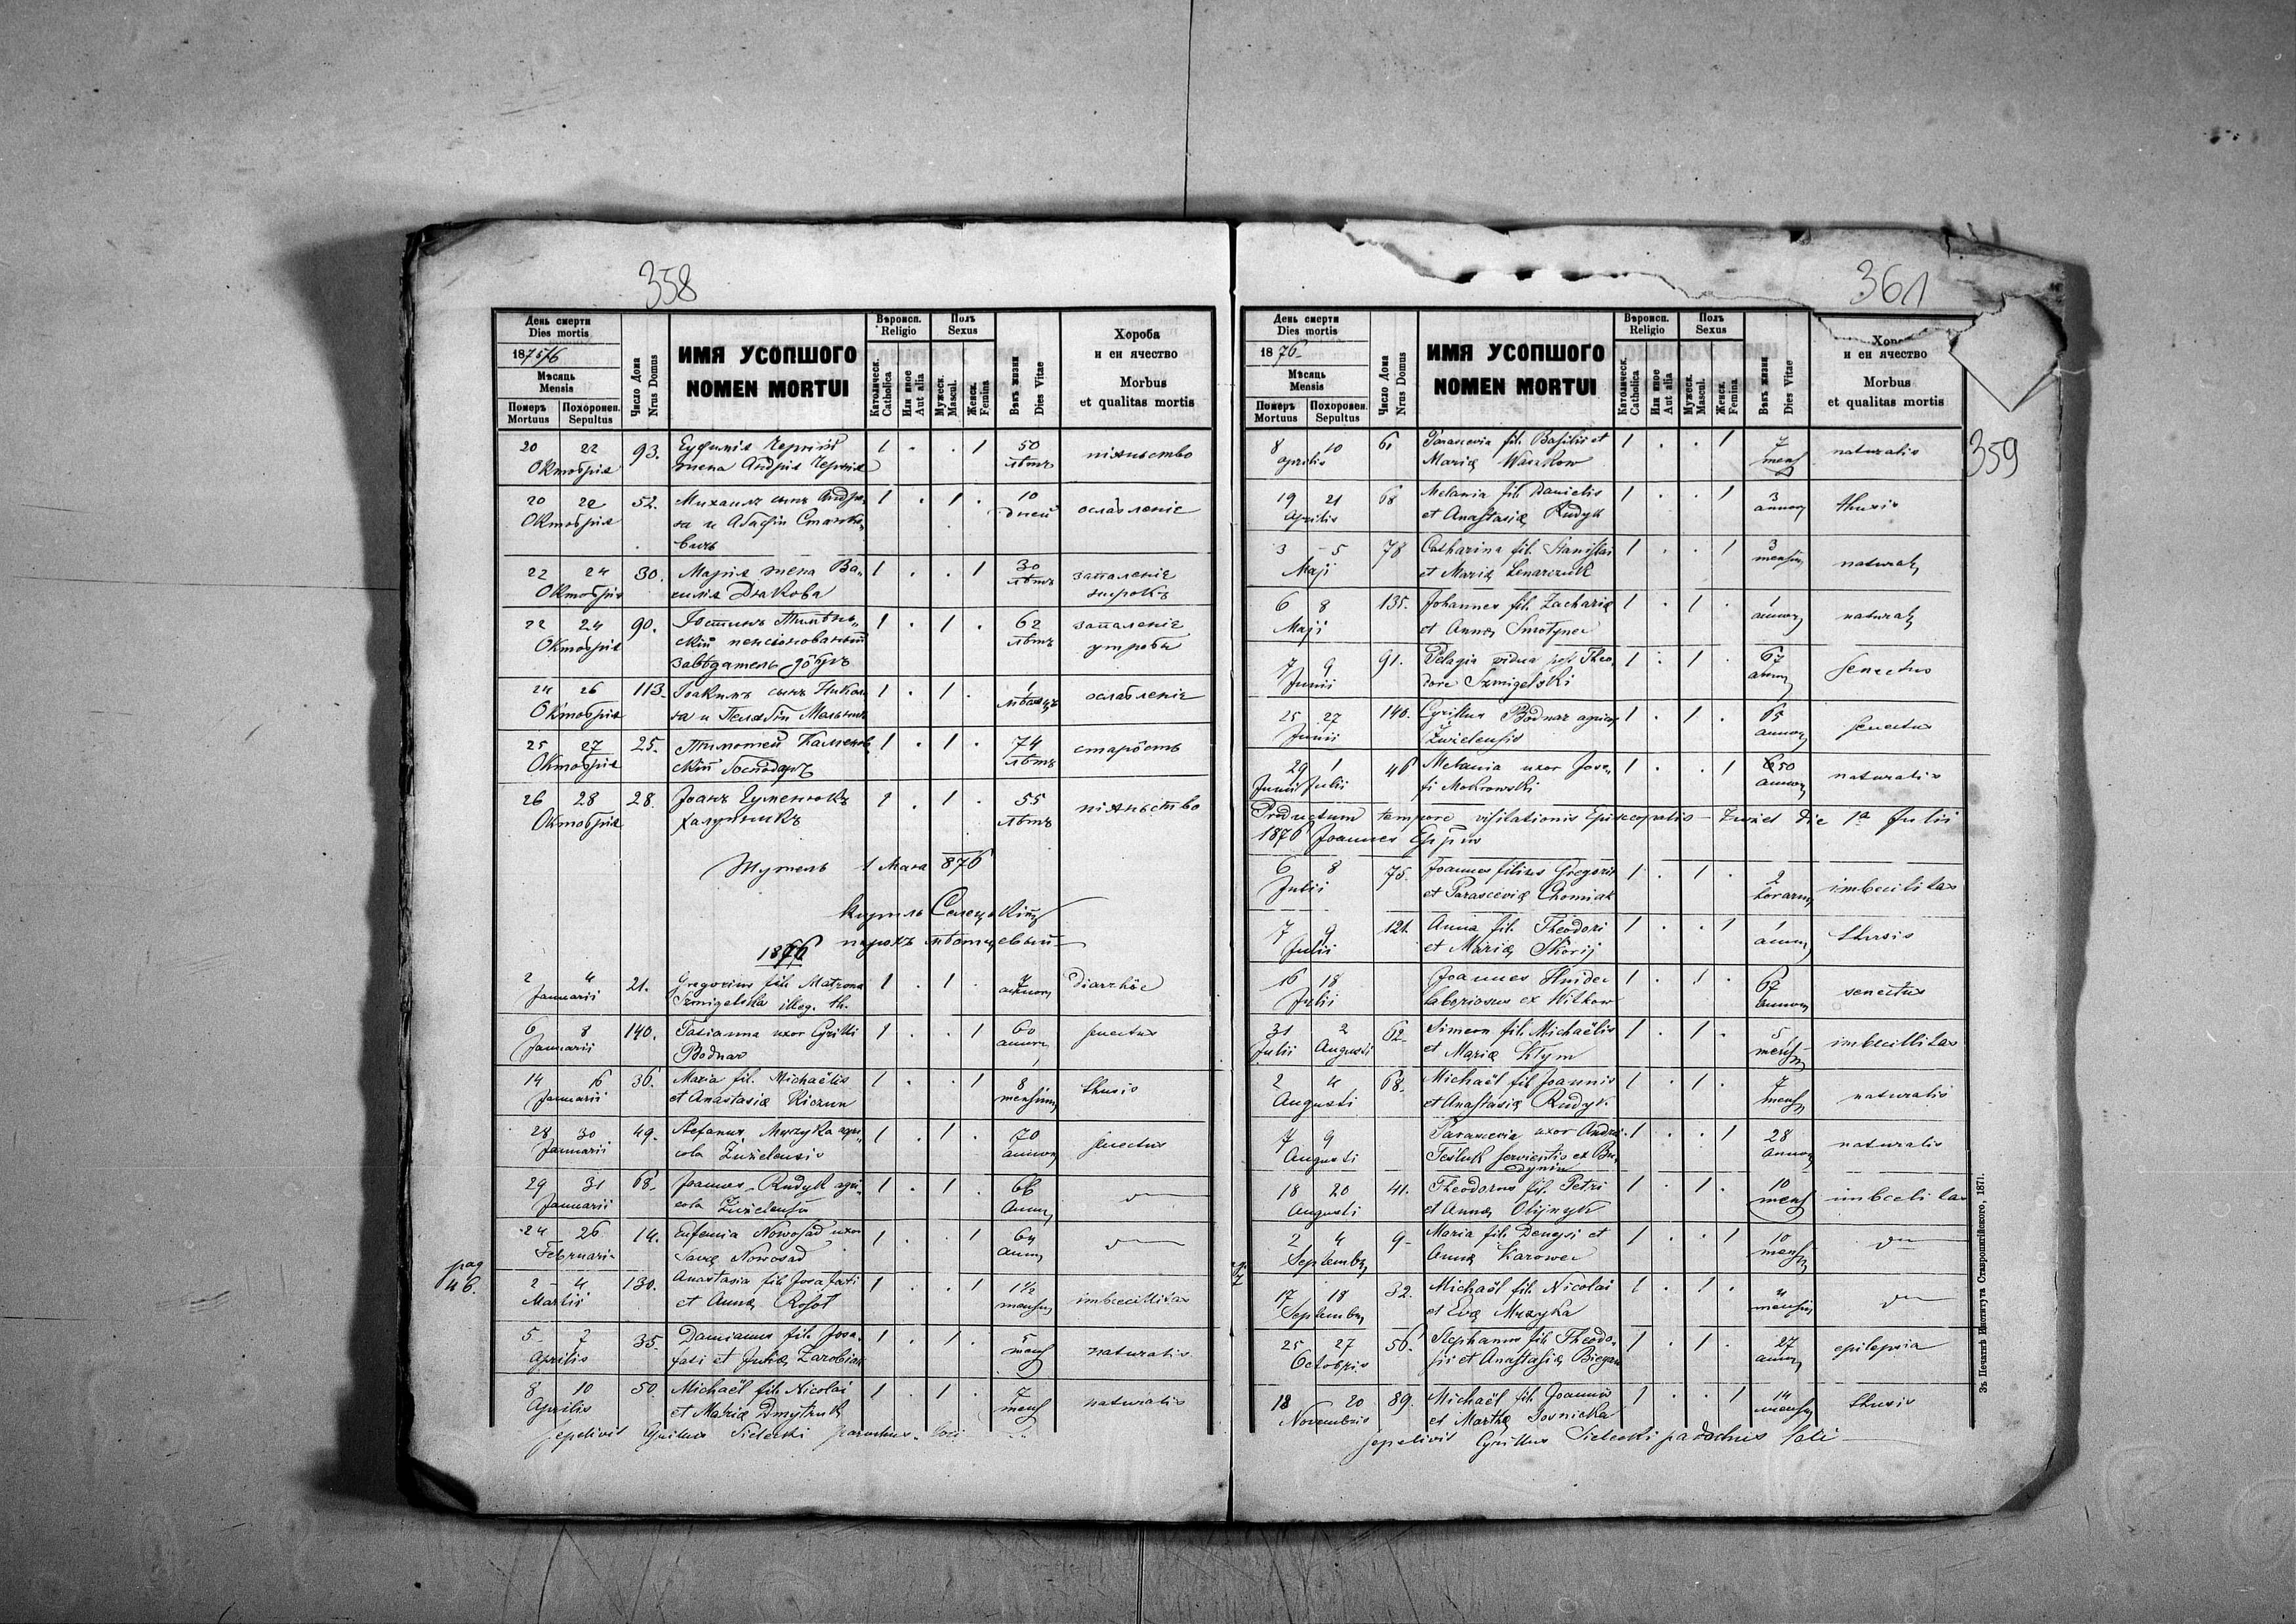 358
День смерти
Dies mortis
1875/6
Мѣсяць
Mensis
Померъ Похоронен.
Mortuus Sepultus
Число Дома
Nrus Domus
ИМЯ УСОПШОГО
NOMEN MORTUI
Вѣроисп.
Religio
Католическ.
Catholica
Или иное
Aut alia
Полъ
Sexus
Мужеск.
Mascul.
Женск.
Femina
Вѣкъ жизни
Dies Vitae
Хороба
и еи ячество
Morbus
et qualitas mortis
20 22 93. Еуфимія Черній 1 . . 1 50 піяньство
Октобрія жена Андрія Чернія лѣтъ
20 22 52. Михаилъ сынъ 1 . 1 . 10 ослабленіе
Октобрія дней
22 24 30. Марія жена Ва- 1 . . 1 30 запаленіе
Октобрія силія Дьякова лѣтъ
22 24 90. 1 . 1 . 62 запаленіе
Октобрія пенсіонованый лѣтъ утробы
завѣдатель добръ
24 26 113. Іоакимъ сынъ Никол- 1 . 1 . 1 ослабленіе
Октобрія мѣсяцъ
25 27 25. Тимотей Каменов 1 . 1 . 74 старôсть
Октобрія скій Господарь лѣтъ
26 28 28. Іоанъ Гуменюкъ 1 . 1 . 55 піяньство
Октобрія халупникъ лѣтъ
Жужель 1 Мая 876
Кирилъ Селецкій
парохъ мѣстцевый
1876
2 4 21. Gregorius fil. Matrona 1 . 1 . annor Diarrhöe
Januarii Szmigelska illeg. th.
6 8 140. Tatianna uxor Cyrilli 1 . . 1 60 senectus
Januarii Bodnar annor
14 16 36. Maria fil. Michaëlis 1 . . 1 8 thusis
Januarii et Anastasiæ Kiczun mensium
28 30 49. Stefanus Muzyka agri- 1 . 1 . 70 senectus
Januarii cola Zużelensis annor
29 31 68. Joannes Rudyk agri- 1 . 1 . 66
Januarii cola Zużelensis Annor
24 26 14. Eufemia Nowosad uxor 1 . . 1
Februarii Savæ Nowosad annor
pag
46.
2 4 130. Anastasia fil. Josafati 1 . . 1 1½ imbecillitas
Martii et Annæ Rosoł mensium
5 7 35. Damianus fil. Josa- 1 . 1 . 5 naturalis
Aprilis fati et Juliæ mens
8 10 50. Michaël fil. Nicolai 1 . 1 . 7 naturalis
Aprilis et Mariæ Dmytruk mens
sepelivit Cyrillus Sielecki parochus loci
361
359
День смерти
Dies mortis
1876
Мѣсяць
Mensis
Померъ Похоронен.
Mortuus Sepultus
Число Дома
Nrus Domus
ИМЯ УСОПШОГО
NOMEN MORTUI
Вѣроисп.
Religio
Католическ.
Catholica
Или иное
Aut alia
Полъ
Sexus
Мужеск.
Mascul.
Женск.
Femina
Вѣкъ жизни
Dies Vitae
и еи ячество
Morbus
et qualitas mortis
8 10 6. Parascevia fil. Basilii et 1 . . 1 7 naturalis
Aprilis Mariæ mens
19 21 68 Melania fil. Danielis 1 . . 1 3 thusis
Aprilis et Anastasiæ Rudyk annor
3 5 78 Catharina fil. Stanislai 1 . . 1 3 natural
Maji et Mariæ Lenarczuk mensium
6 8 135. Johannes fil. Zachariæ 1 . 1 . 1 natural
Maji et Annæ Smotynec annor
7 9 91. Pelagia vidua post Theo- 1 . 1 . 67 senectus
Junii dore Szmigelski annor
25 27 140. Cyrillus Bodnar agricol 1 . 1 . 65 senectus
Junii Zużelensis annor
29 1 46 Melania uxor Jose- 1 . . 1 50 naturalis
Junii Julii fi Mokrowski annor
Productum tempore visitationis Episcopalis — Zużel die 1ª Julii
1876 Joannes Eppus
6 8 75. Joannes filius Gregorii 1 . 1 . 2 imbecilitas
Julii et Parasceviæ Chomiak horarum
7 9 121. Anna fil. Theodori 1 . . 1 1 thusis
Julii et Mariæ Skorij annor
16 18 Joannes Hnidec 1 . 1 . 67 senectus
Julii laboriosus ex Witkow annor
31 2 62. Simeon fil. Michaëlis 1 . 1 . 5 imbecillitas
Julii Augusti et Mariæ Kłym mens
2 4 68. Michaël fil. Joannis 1 . 1 . 7 naturalis
Augusti et Anastasiæ Rudyk mens
7 9 Parascevia uxor Andrei 1 . . 1 28 naturalis
Augusti Tesluk servientis ex Bu- annor
dynin
18 20 41. Theodorus fil. Petri 1 . 1 . 10 imbecilitas
Augusti et Annæ Olijnyk mens
2 4 9 Maria fil. Denysi et 1 . . 1 10
Septembr Annæ Karowec mens
17 18 32. Michaël fil. Nicolai 1 . 1 . 4
Septembr et Evæ Muzyka mensium
25 27 56. Stephanus fil. Theodo- 1 . 1 . 27 epilepsia
Octobris sii et Anastasiæ annor
18 20 89. Michaël fil. Joannis 1 . . 1 14 thusis
Novembris et Marthæ Sosnicka mensium
sepelivit Cyrillus Sielecki parochus loci
Зъ Печатнѣ Института Ставропигійского, 1871.